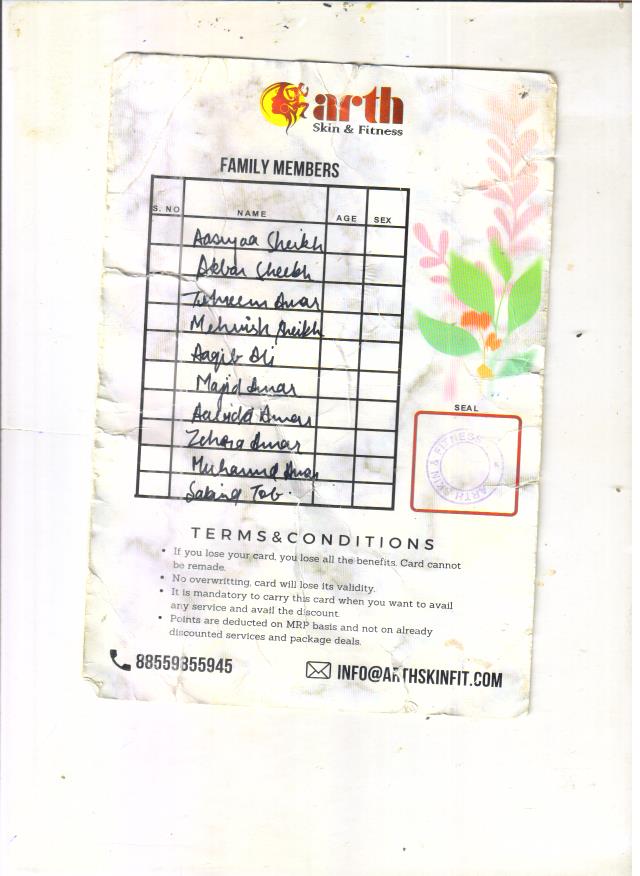 arth
Skin & Fitness
FAMILY MEMBERS
S. NO NAME AGE SEX
Aasiyaa Sheikh
Akbar Sheikh
Tehreem Amar
Mehwish Sheikh
Aaqib Ali
Majid Amar
Amar
Zehara Amar
Muhammd Amar
SEAL
ARTH SKIN & FITNESS
TERMS&CONDITIONS
• If you lose your card, you lose all the benefits. Card cannot
be remade.
• No overwritting, card will lose its validity.
• It is mandatory to carry this card when you want to avail
any service and avail the discount.
• Points are deducted on MRP basis and not on already
discounted services and package deals.
88559355945
INFO@ARTHSKINFIT.COM